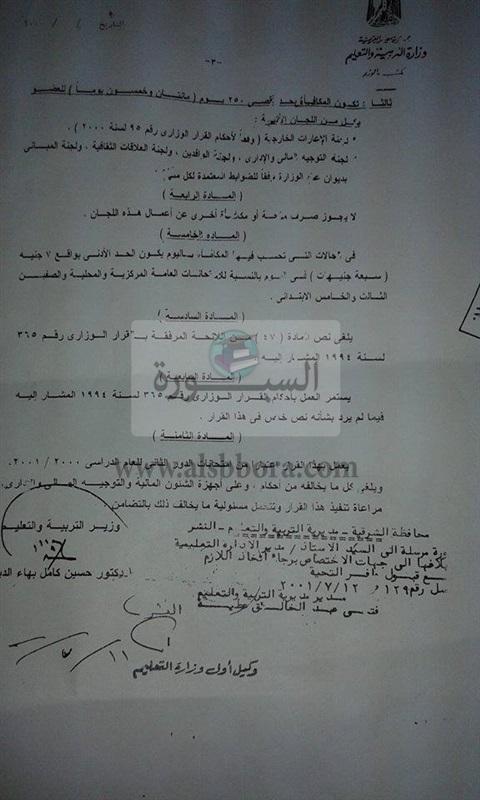 التاريخ / / ٢٠٠
وزارة التربية والتعليم
مكتب الوزير
- ٣ -
ثالثا : تكون المكافأة بحد أقصى ٢٥٠ يوم ( مائتان وخمسون يوماً ) للعضو
وكل من اللجان الآتية :
• لجنة الإعارات الخارجية ( وفقاً لأحكام القرار الوزارى رقم ٩٥ لسنة ٢٠٠٠ ) .
• لجنة التوجيه المالى والإدارى ، ولجنة الوافدين ، ولجنة العلاقات الثقافية ، ولجنة المبانى
بديوان عام الوزارة وفقاً للضوابط المعتمدة لكل منها
( المــادة الرابعة )
لا يجوز صرف أو مكافأة أخرى عن أعمال هذه اللجان .
( المــاده الخامسة )
فى الحالات التى تحسب فيها المكافأة باليوم يكون الحد الأدنى بواقع ٧ جنيه
( سبعة جنيهات ) فى اليوم بالنسبة للامتحانات العامة المركزية والمحلية والصفين
الثالث والخامس الابتدائى .
( المــادة السادسة )
يلغى نص المادة ( ٤٧ ) من اللائحة المرفقة بالقرار الوزارى رقم ٣٦٥
لسنة ١٩٩٤ المشار إليه .
السبورة
( المــادة السابعة )
يستمر العمل بأحكام القرار الوزارى رقم ٣٦٥ لسنة ١٩٩٤ المشار إليه
فيما لم يرد بشأنه نص خاص فى هذا القرار .
( المــادة الثامنة )
يعمل بهذا القرار اعتباراً من امتحانات الدور الثانى للعام الدراسى ٢٠٠٠ / ٢٠٠١ ،
www.alsbbora.com
ويلغى كل ما يخالفه من أحكام ، وعلى أجهزة الشئون المالية والتوجيه المالى والإدارى
مراعاة تنفيذ هذا القرار وتتحمل مسئولية ما يخالف ذلك بالتضامن .
وزير التربية والتعليم
دكتور حسين كامل بهاء الد
محافظة الشرقية - مديرية التربية والتعليم - النشر
صورة مرسلة الى السيد الاستاذ / مدير الادارة التعليمية
لابلاغها الى جهات الاختصاص برجاء اتخاذ اللازم
مع قبول وافر التحية
رقم ١٢٩ ٢٠٠١/٧/١٢
مدير مديرية التربية والتعليم
فتحى عبد الخالق
النشر
وكيل أول وزارة التعليم